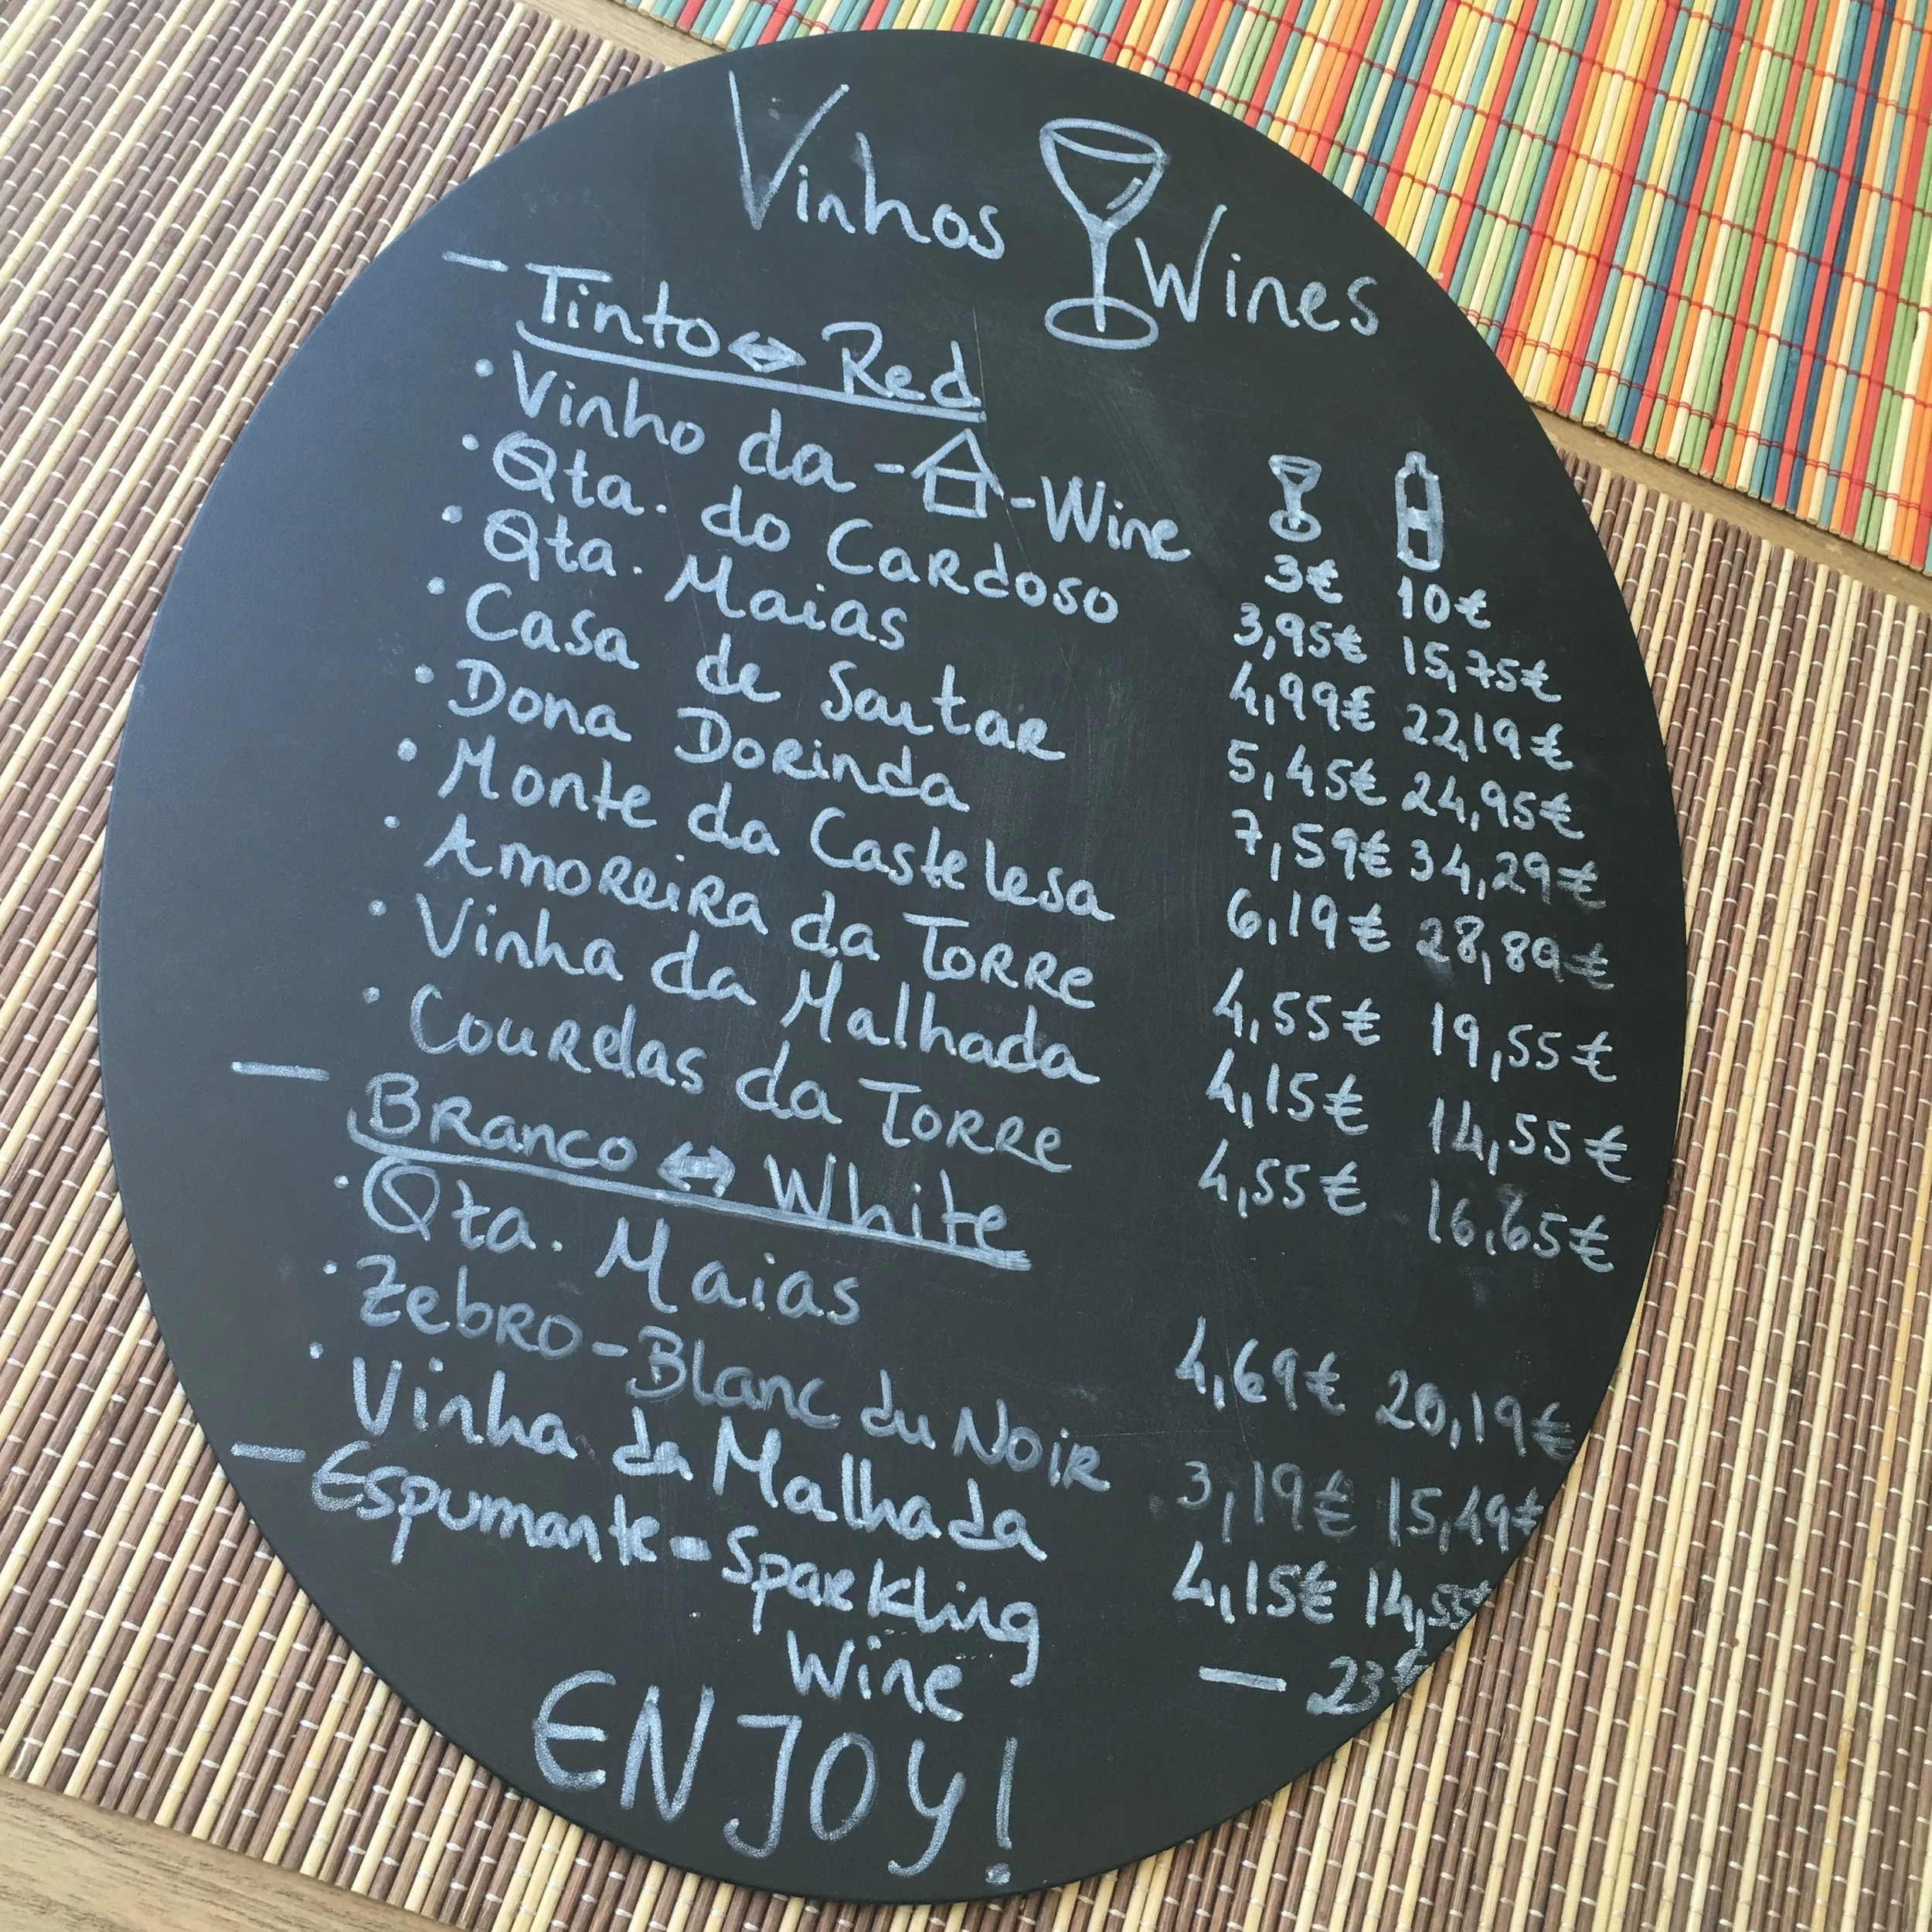 Vinhos Wines
- Tinto ⇔ Red
• Vinho da - -Wine 3€ 10€
• Qta. do Cardoso 3,95€ 15,75€
• Qta. Maias 4,99€ 22,19€
• Casa de Santar 5,45€ 24,95€
• Dona Dorinda 7,59€ 34,29€
• Monte da Castelesa 6,19€ 28,89€
• Amoreira da Torre 4,55€ 19,55€
• Vinha da Malhada 4,15€ 14,55€
• Courelas da Torre 4,55€ 16,65€
- Branco ⇔ White
• Qta. Maias 4,69€ 20,19€
• Zebro - Blanc du Noir 3,19€ 15,49€
• Vinha da Malhada 4,15€ 14,55€
- Espumante - Sparkling
Wine — 23€
ENJOY!